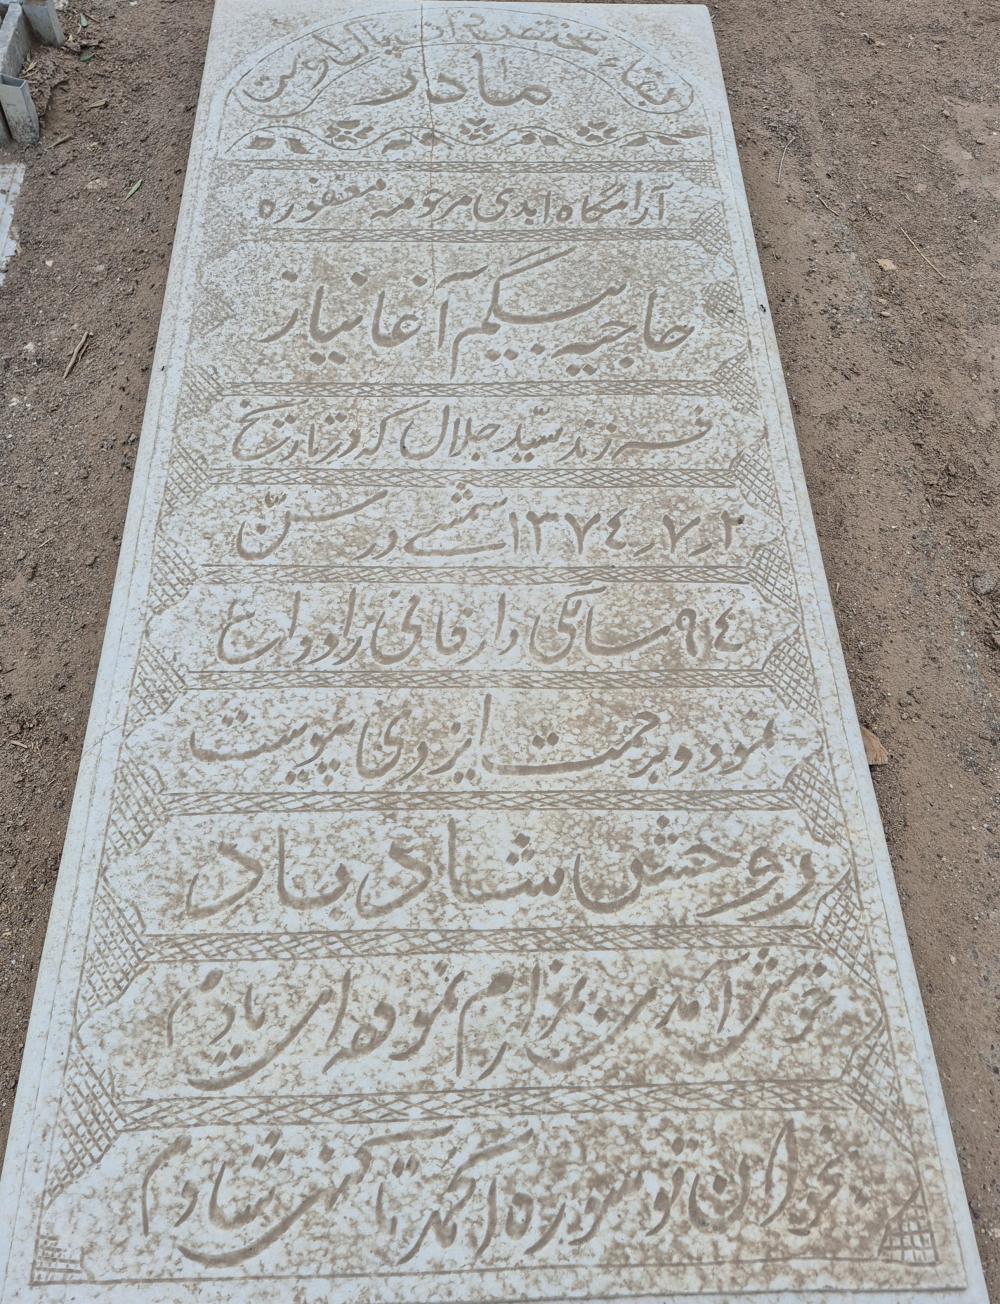 بقاء مختصر
مادر
آرامگاه ابدی مرحومه مغفوره
حاجیه بیگم آغا نیاز
فرزند سیّد جلال که در تاریخ
۲ر۷ر۱۳۷٤ شمسی در سنّ
۹٤ سالگی دار فانی را وداع
نمود و برحمت ایزدی پیوست
روحش شاد باد
خوش آمدی بمزارم نموده ای یادم
بخوان تو سوره الحمد تا کنی شادم